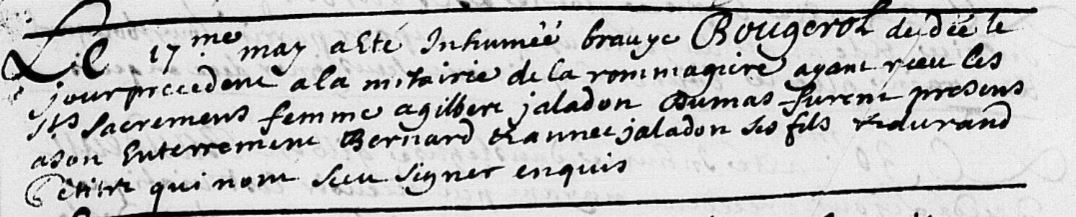 Le 17me may a ete Inhumée brauye Bougerol dedée le
jour precedent a la mitairie de la rommagiere ayant reçu les
sts sacremens femme a gilbert jaladon Dumas furent presens
a son Enterrement Bernard & annet jaladon ses fils & durand
petitit qui nont sceu signer enquis